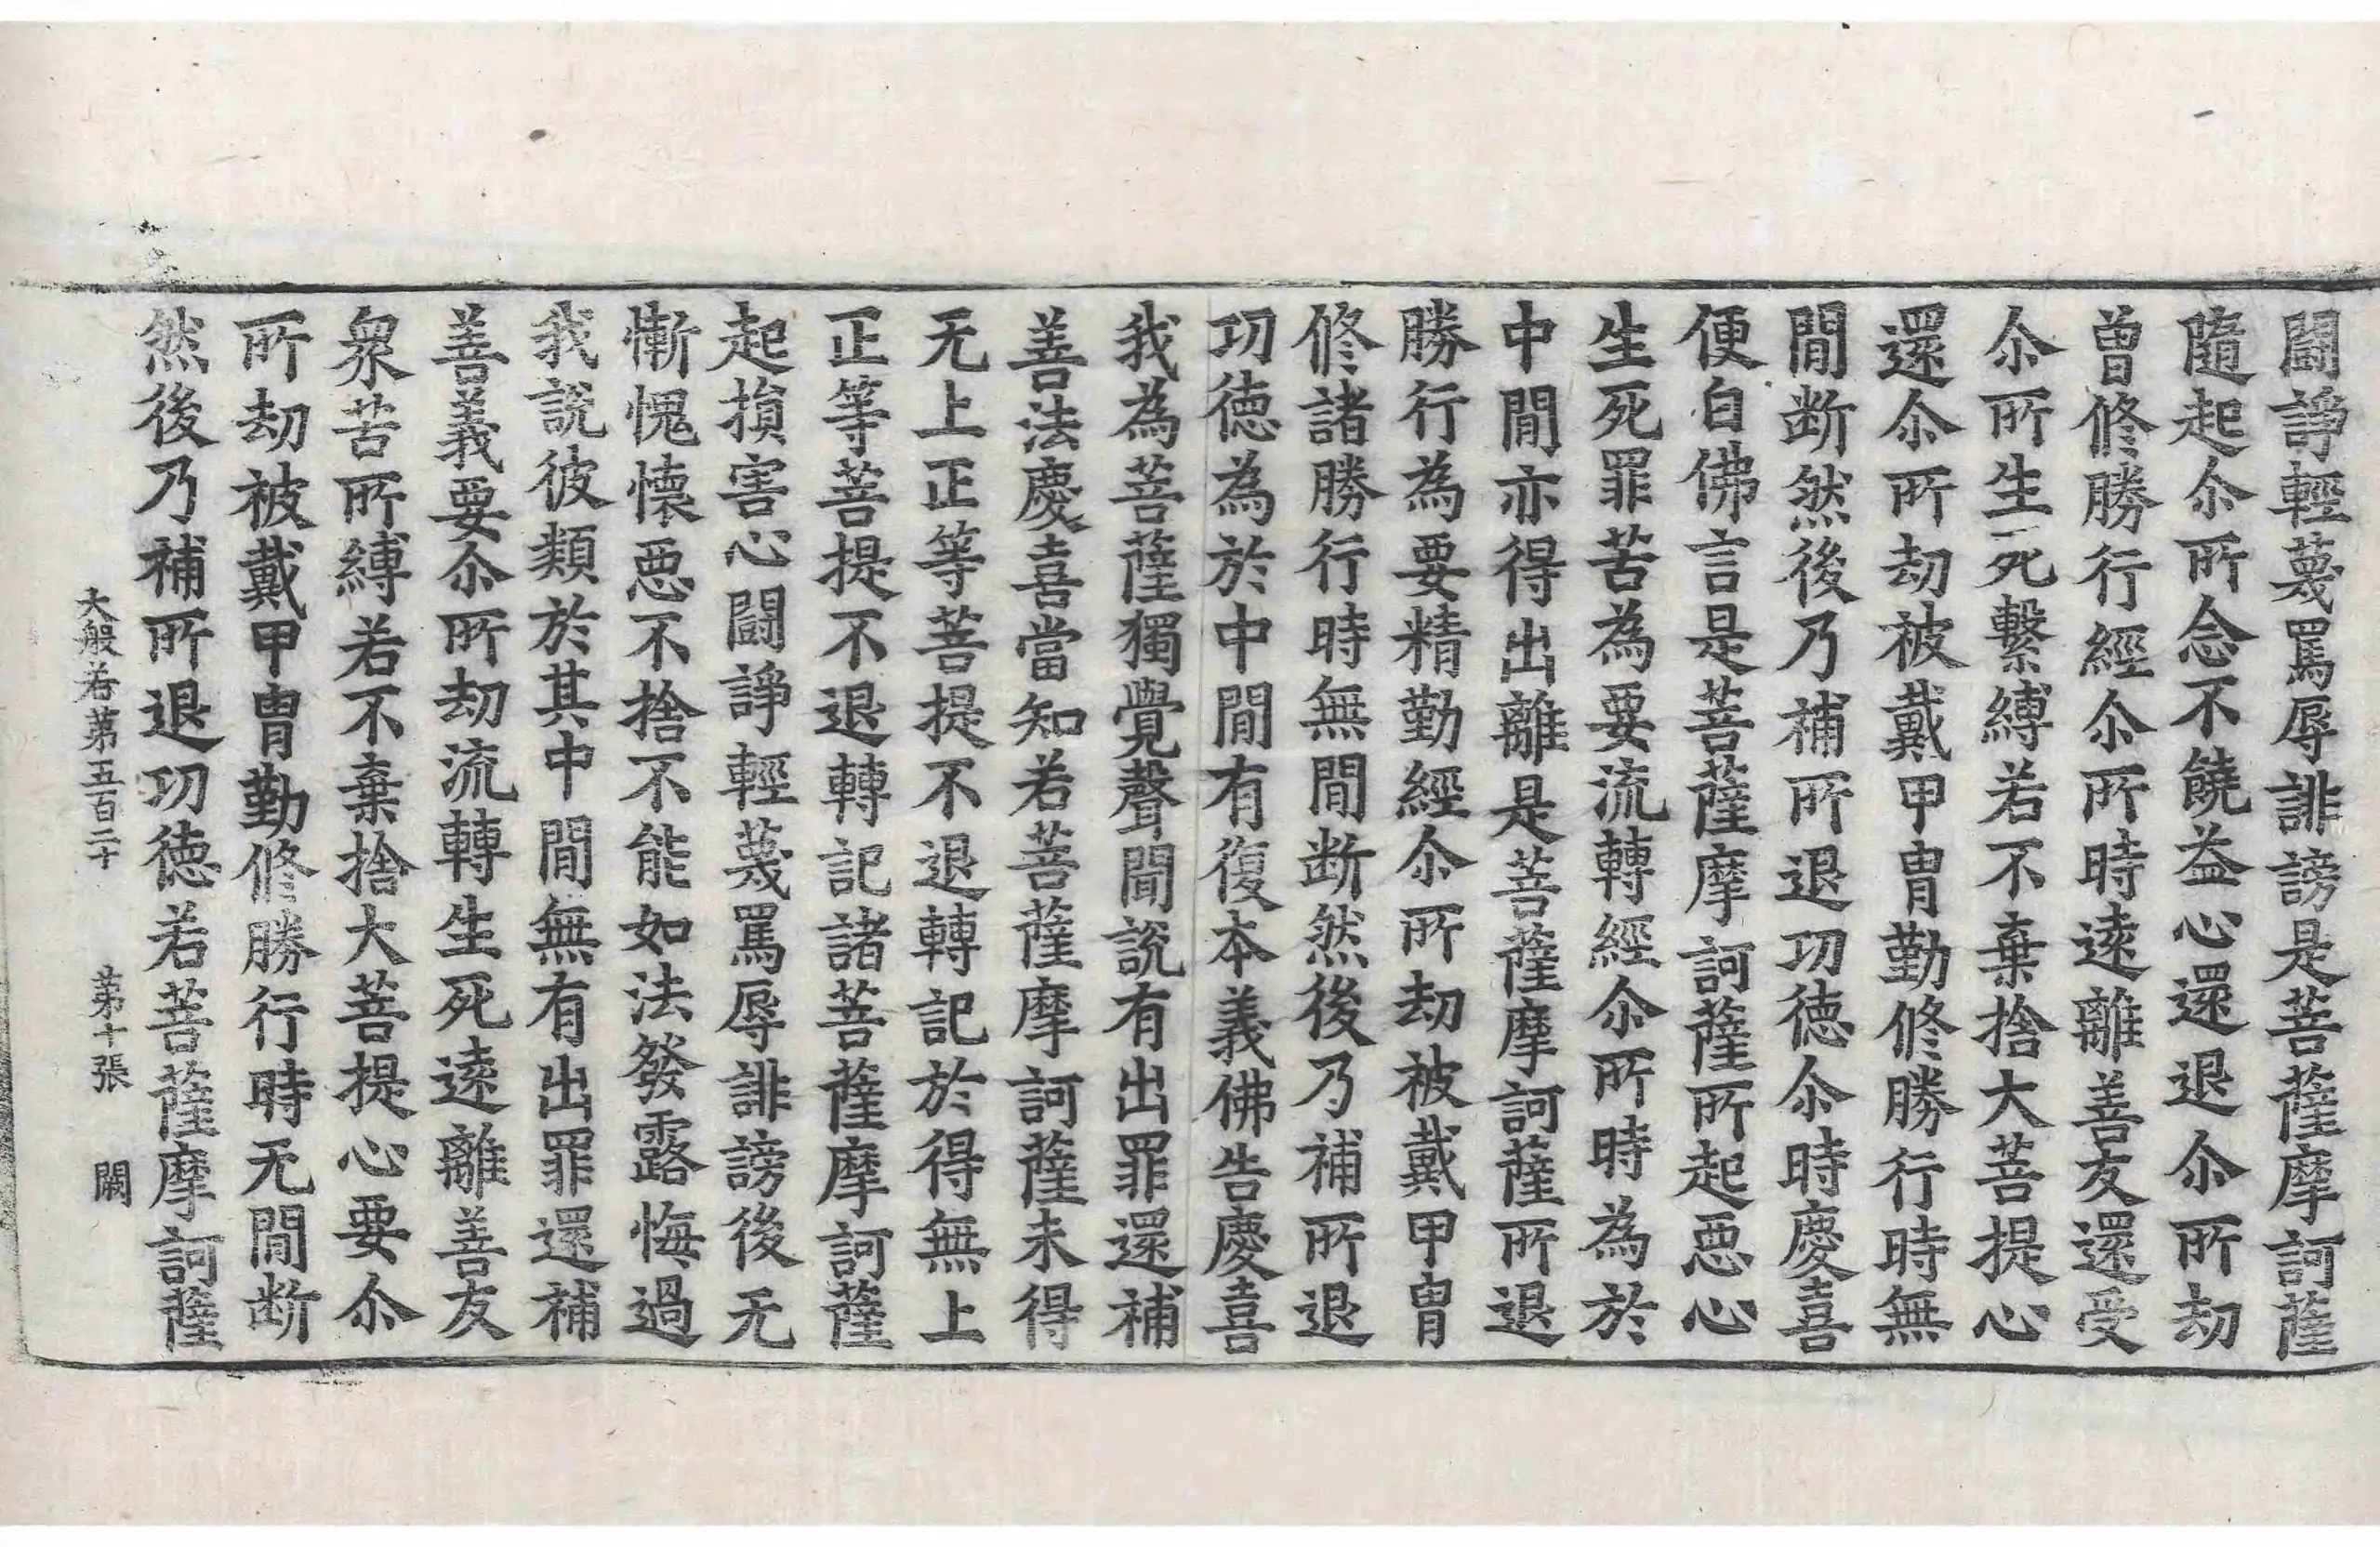 鬪諍輕蔑罵辱誹謗是菩薩摩訶薩
隨起尒所念不饒益心還退尒所劫
曾修勝行經尒所時遠離善友還受
尒所生死繫縛若不棄捨大菩提心
還尒所劫被戴甲冑勤修勝行時無
閒断然後乃補所退功德尒時慶喜
便白佛言是菩薩摩訶薩所起惡心
生死罪苦為要流轉經尒所時為於
中閒亦得出離是菩薩摩訶薩所退
勝行為要精勤經尒所劫被戴甲冑
修諸勝行時無閒断然後乃補所退
功德為於中閒有復本義佛告慶喜
我為菩薩獨覺聲聞說有出罪還補
善法慶喜當知若菩薩摩訶薩未得
无上正等菩提不退轉記於得無上
正等菩提不退轉記諸菩薩摩訶薩
起損害心鬪諍輕蔑罵辱誹謗後无
慚愧懷惡不捨不能如法發露悔過
我說彼類於其中閒無有出罪還補
善義要尒所劫流轉生死遠離善友
衆苦所縛若不棄捨大菩提心要尒
所劫被戴甲冑勤修勝行時无閒断
然後乃補所退功德若菩薩摩訶薩
大般若第五百二十 第十張 闕